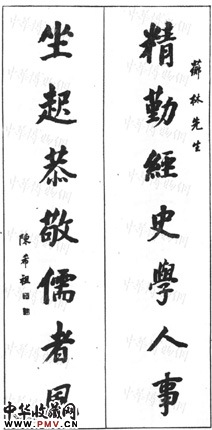 蘚林先生
精勤經史學人事
坐起恭敬儒者風
陳希祖
中华收藏网
www.PMV.CN